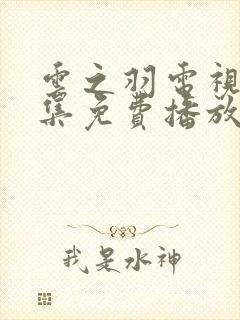 雲之羽電視
集免費播放
我是水神